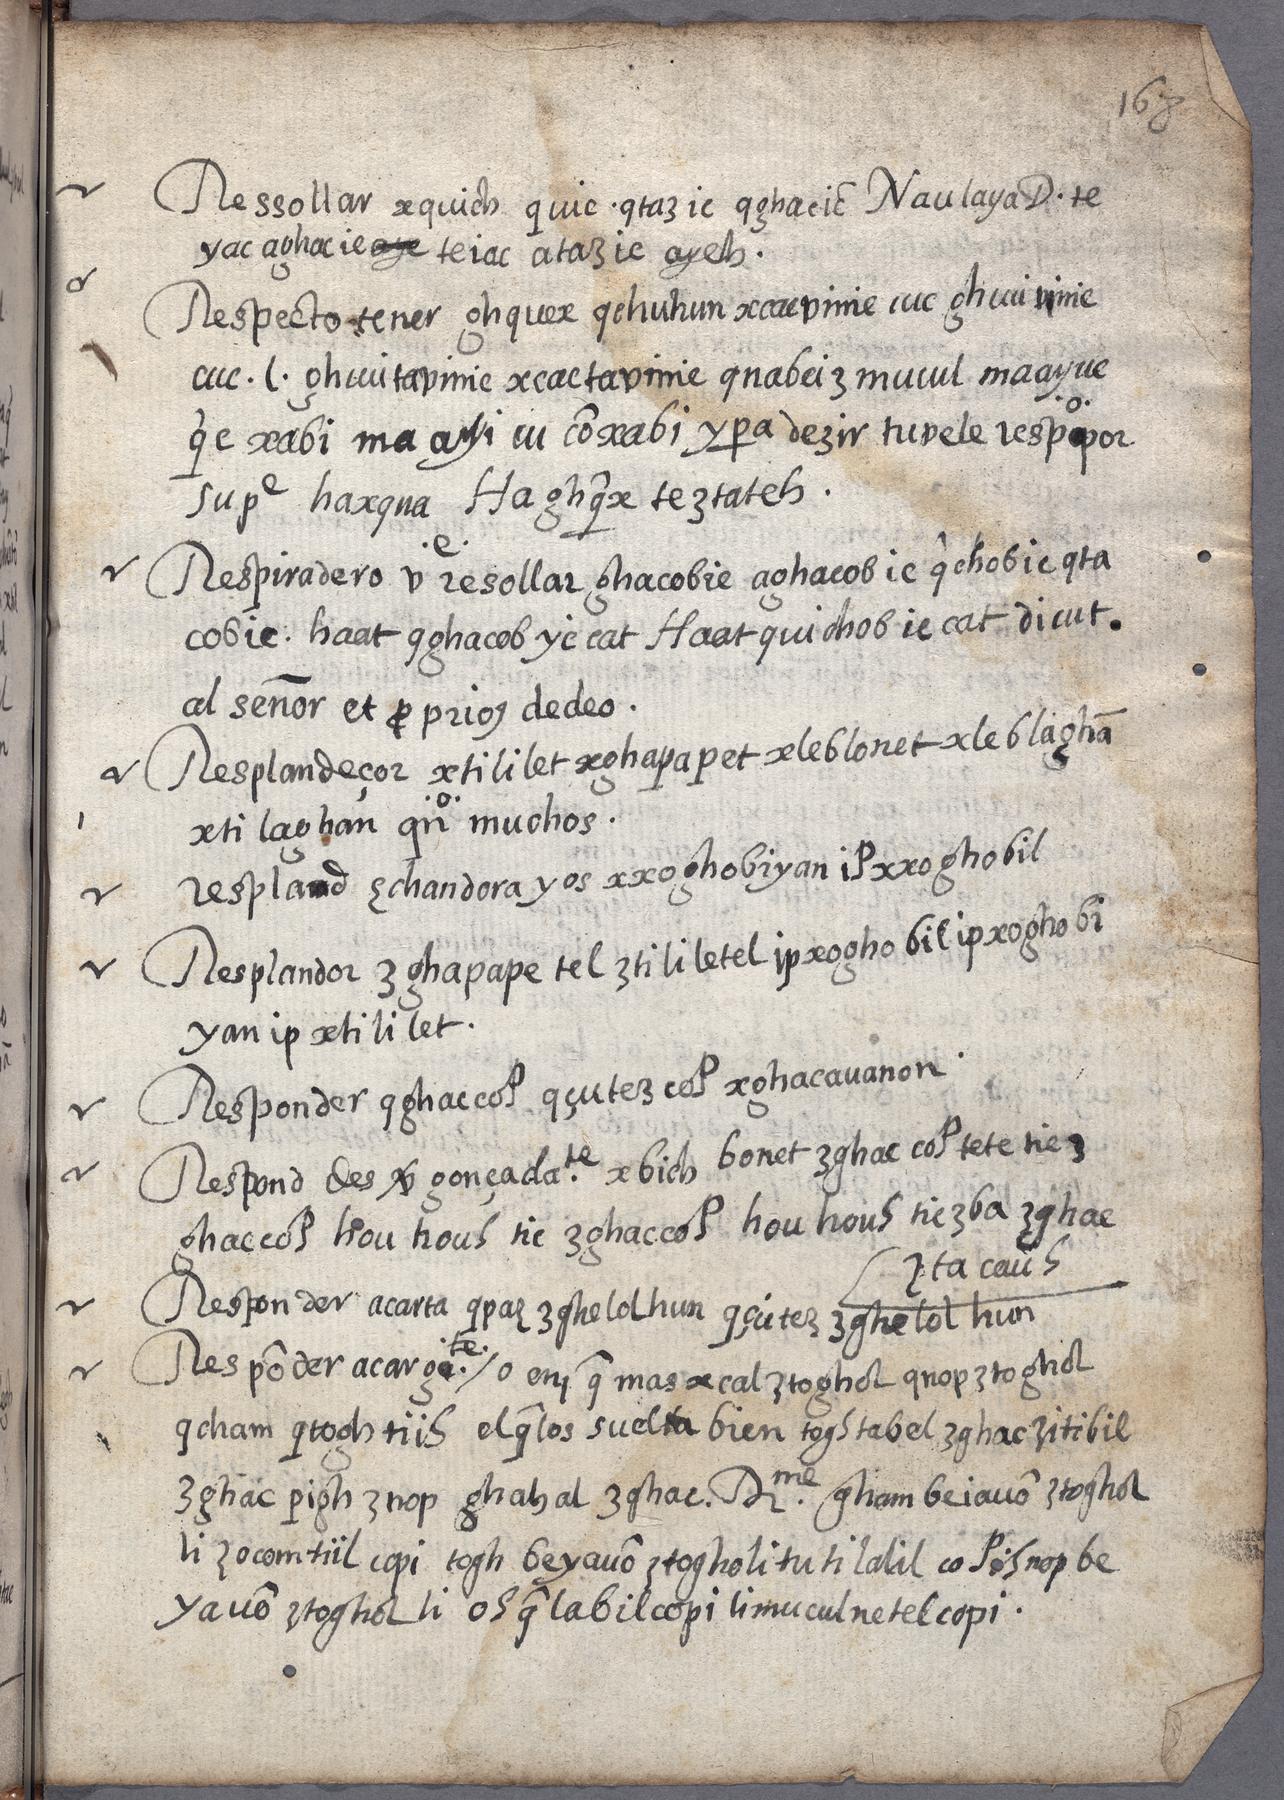 168
Ressollar xquich quic . qtaz ic qghacic̄ Naulaya D. te
yac aghac ie teiac atazic ayeh .
Respecto tener ghquex qchuhun xcacvinie cuc ghcuivinie
cuc . l . ghcuitavinie xcactavinie qnabeiz mucul maayuc
q̄e xabi ma ayi cu cō xabi y pa dezir tuvele resp.º por
su p.e haxqna Haghq̄x teztateh .
Respiradero v̄ .e. resollar ghacobie aghacob ic q̄chobic qta
cobie . haat qghacob yc cat Haat quichob ic cat dicut .
al señor et prios dedeo .
Resplandeçor xtililet xghapapet xleblonet xleblaghā
xti laghan qn̄.º muchos .
respland çchandora y os xxoghobiyan ip xxoghobil
Resplandor zghapape tel ztililetel ip xoghobil ip xoghobi
yan ip xtililet .
Responder qghaccop qçutez cop xghacauanon .
Respond des v gonçada.te xbich bonet zghac cop tete tiez
ghaccop hou hous tic zghaccop hou hous tic zba zghac
zta cauh
Responder acarta qpaz zghelol hun qçutez zghelol hun
Respōder acargi.te / o en q̄ mas xcal ztoghol qnop ztoghol
qcham qtogh tiih el q̄ los suelta bien toghtabel zghac zitibil
zghac pigh znop ghahal zghac . R.me gham beiauō ztoghol
li zocomtiil copi togh beyauō ztogholi tutilalil cop ish nop be
yauō ztoghol li osh q̄ labil copi limucul netel copi .